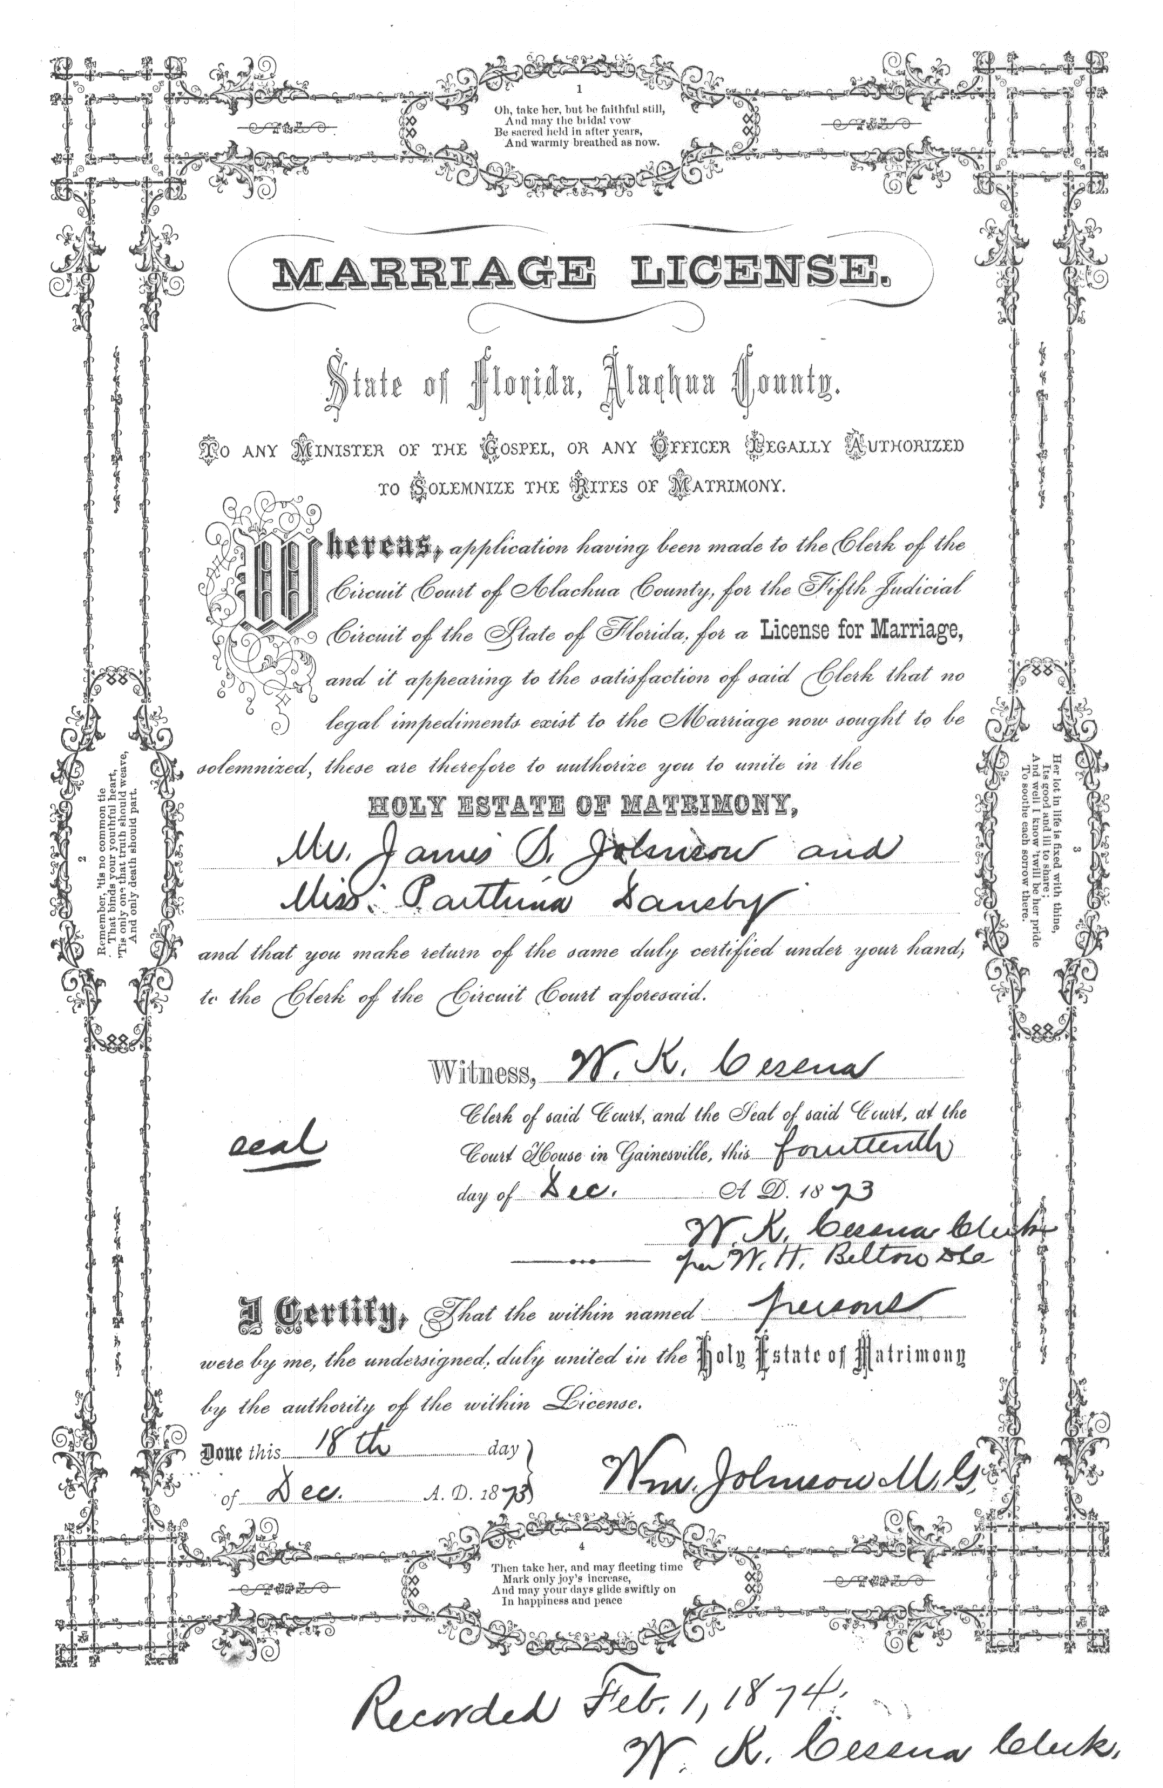 1
Oh, take her, but be faithful still,
And may the bridal vow
Be sacred held in after years,
And warmly breathed as now.
MARRIAGE LICENSE.
State of Florida, Alachua County.
To any Minister of the Gospel, or any Officer Legally Authorized
to Solemnize the Rites of Matrimony.
Whereas, application having been made to the Clerk of the
Circuit Court of Alachua County, for the Fifth Judicial
Circuit of the State of Florida, for a License for Marriage,
and it appearing to the satisfaction of said Clerk that no
legal impediments exist to the Marriage now sought to be
solemnized, these are therefore to authorize you to unite in the
HOLY ESTATE OF MATRIMONY,
Mr. James S. Johnson and
Miss. Parthina Dansby
and that you make return of the same duly certified under your hand,
to the Clerk of the Circuit Court aforesaid.
2
Remember, 'tis no common tie
That binds your youthful heart,
'Tis only one that truth should weave,
And only death should part.
3
Her lot in life is fixed with thine,
Its good and ill to share;
And well I know 'twill be her pride
To soothe each sorrow there.
Witness, W. K. Cessna
Clerk of said Court, and the Seal of said Court, at the
seal
Court House in Gainesville, this fourteenth
day of Dec. A D. 1873
W. K. Cessna Clerk
per W. H. Belton DC
I Certify, That the within named persons
were by me, the undersigned, duly united in the Holy Estate of Matrimony
by the authority of the within License.
Done this 18th day
of Dec. A. D. 1873
Wm. Johnson M. G.
4
Then take her, and may fleeting time
Mark only joy's increase,
And may your days glide swiftly on
In happiness and peace
Recorded Feb. 1, 1874.
W. K. Cessna Clerk.